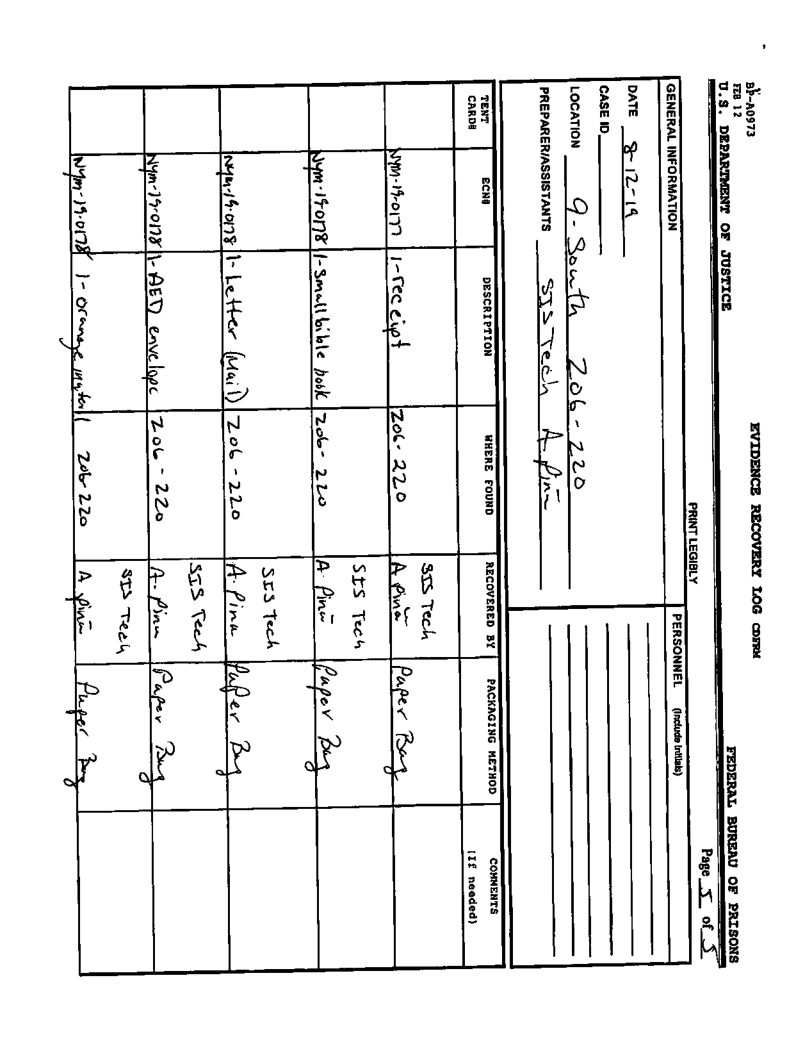 BP-A0973
FEB 12
EVIDENCE RECOVERY LOG CDFRM
U.S. DEPARTMENT OF JUSTICE
FEDERAL BUREAU OF PRISONS
Page 5 of 5
PRINT LEGIBLY
GENERAL INFORMATION
PERSONNEL (Include Initials)
DATE 8-12-19
CASE ID
LOCATION 9-South 206-220
PREPARER/ASSISTANTS SIS Tech A Pina
TENT CARD# ECN# DESCRIPTION WHERE FOUND RECOVERED BY PACKAGING METHOD COMMENTS (If needed)
NYM-19-0177 1-receipt 206-220 SIS Tech A Pina Paper Bag
NYM-19-0178 1-Small bible book 206-220 SIS Tech A. Pina Paper Bag
NYM-19-0178 1-Letter (Mail) 206-220 SIS Tech A. Pina Paper Bag
NYM-19-0178 1-AED envelope 206-220 SIS Tech A. Pina Paper Bag
NYM-19-0178 1-orange 206-220 SIS Tech A Pina Paper Bag